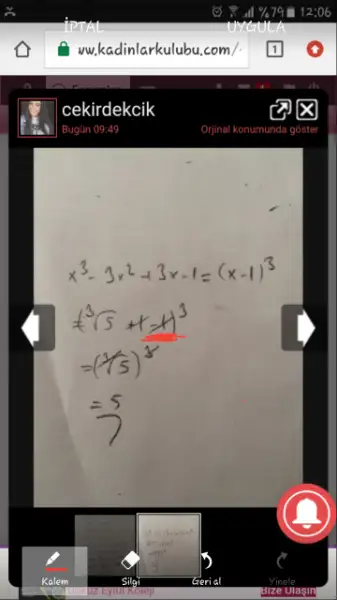 İPTAL UYGULA
%79 12:06
vw.kadinlarkulubu.com/ 1
cekirdekcik
Bugün 09:49 Orjinal konumunda göster
x³ - 3x² + 3x - 1 = (x - 1)³
= (³√5 + 1 - 1)³
= (³√5)³
= 5
Kalem Silgi Geri al Yinele
Bize Ulaşın